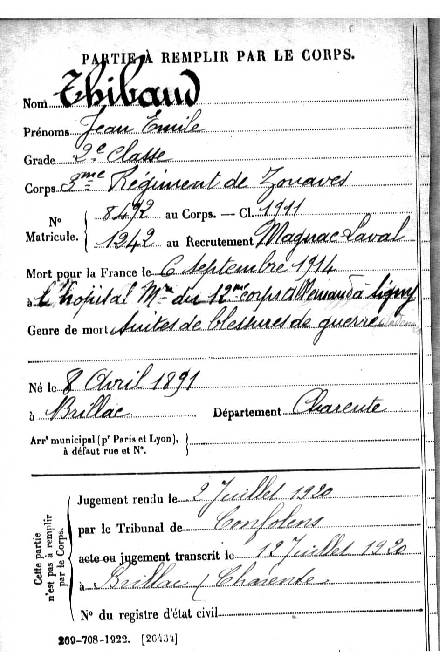 PARTIE À REMPLIR PAR LE CORPS.
Nom Thibaud
Prénoms Jean Emile
Grade 2e classe
Corps 3me Régiment de Zouaves
N° Matricule. { 8492 au Corps. — Cl. 1911
1242 au Recrutement Magnac Laval
Mort pour la France le 6 Septembre 1914
à l'hôpital Mre du 12me corps Allemand à Ligny
Genre de mort suites de blessures de guerre
Né le 8 Avril 1891
à Brillac Département Charente
Arrt municipal (pr Paris et Lyon), à défaut rue et N°.
Cette partie n'est pas à remplir par le Corps.
Jugement rendu le 2 Juillet 1920
par le Tribunal de Confolens
acte ou jugement transcrit le 12 Juillet 1920
à Brillac (Charente
N° du registre d'état civil
269-708-1922. [26434]